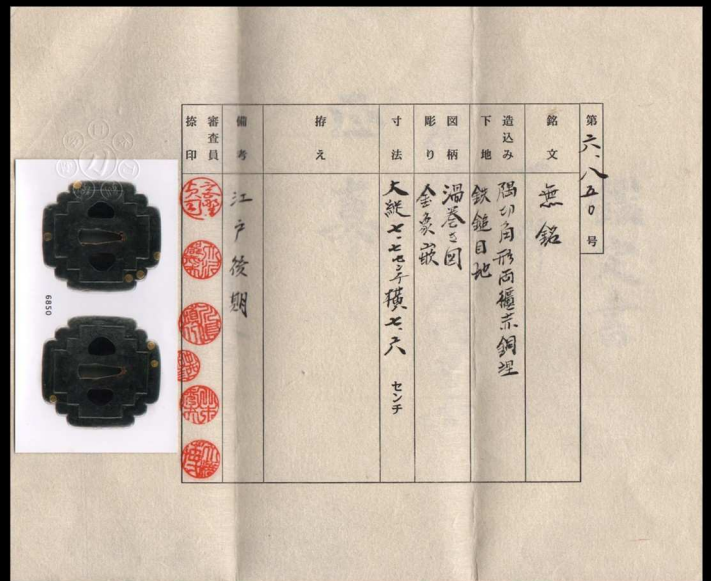 第六、八五〇号
銘文
無銘
造込み
下地
隅切角形両櫃赤銅埋
鉄鎚目地
図柄
彫り
渦巻き図
金象嵌
寸法
大縦七・七七、小横七・六 センチ
拵え
備考
江戸後期
審査員
捺印
6850